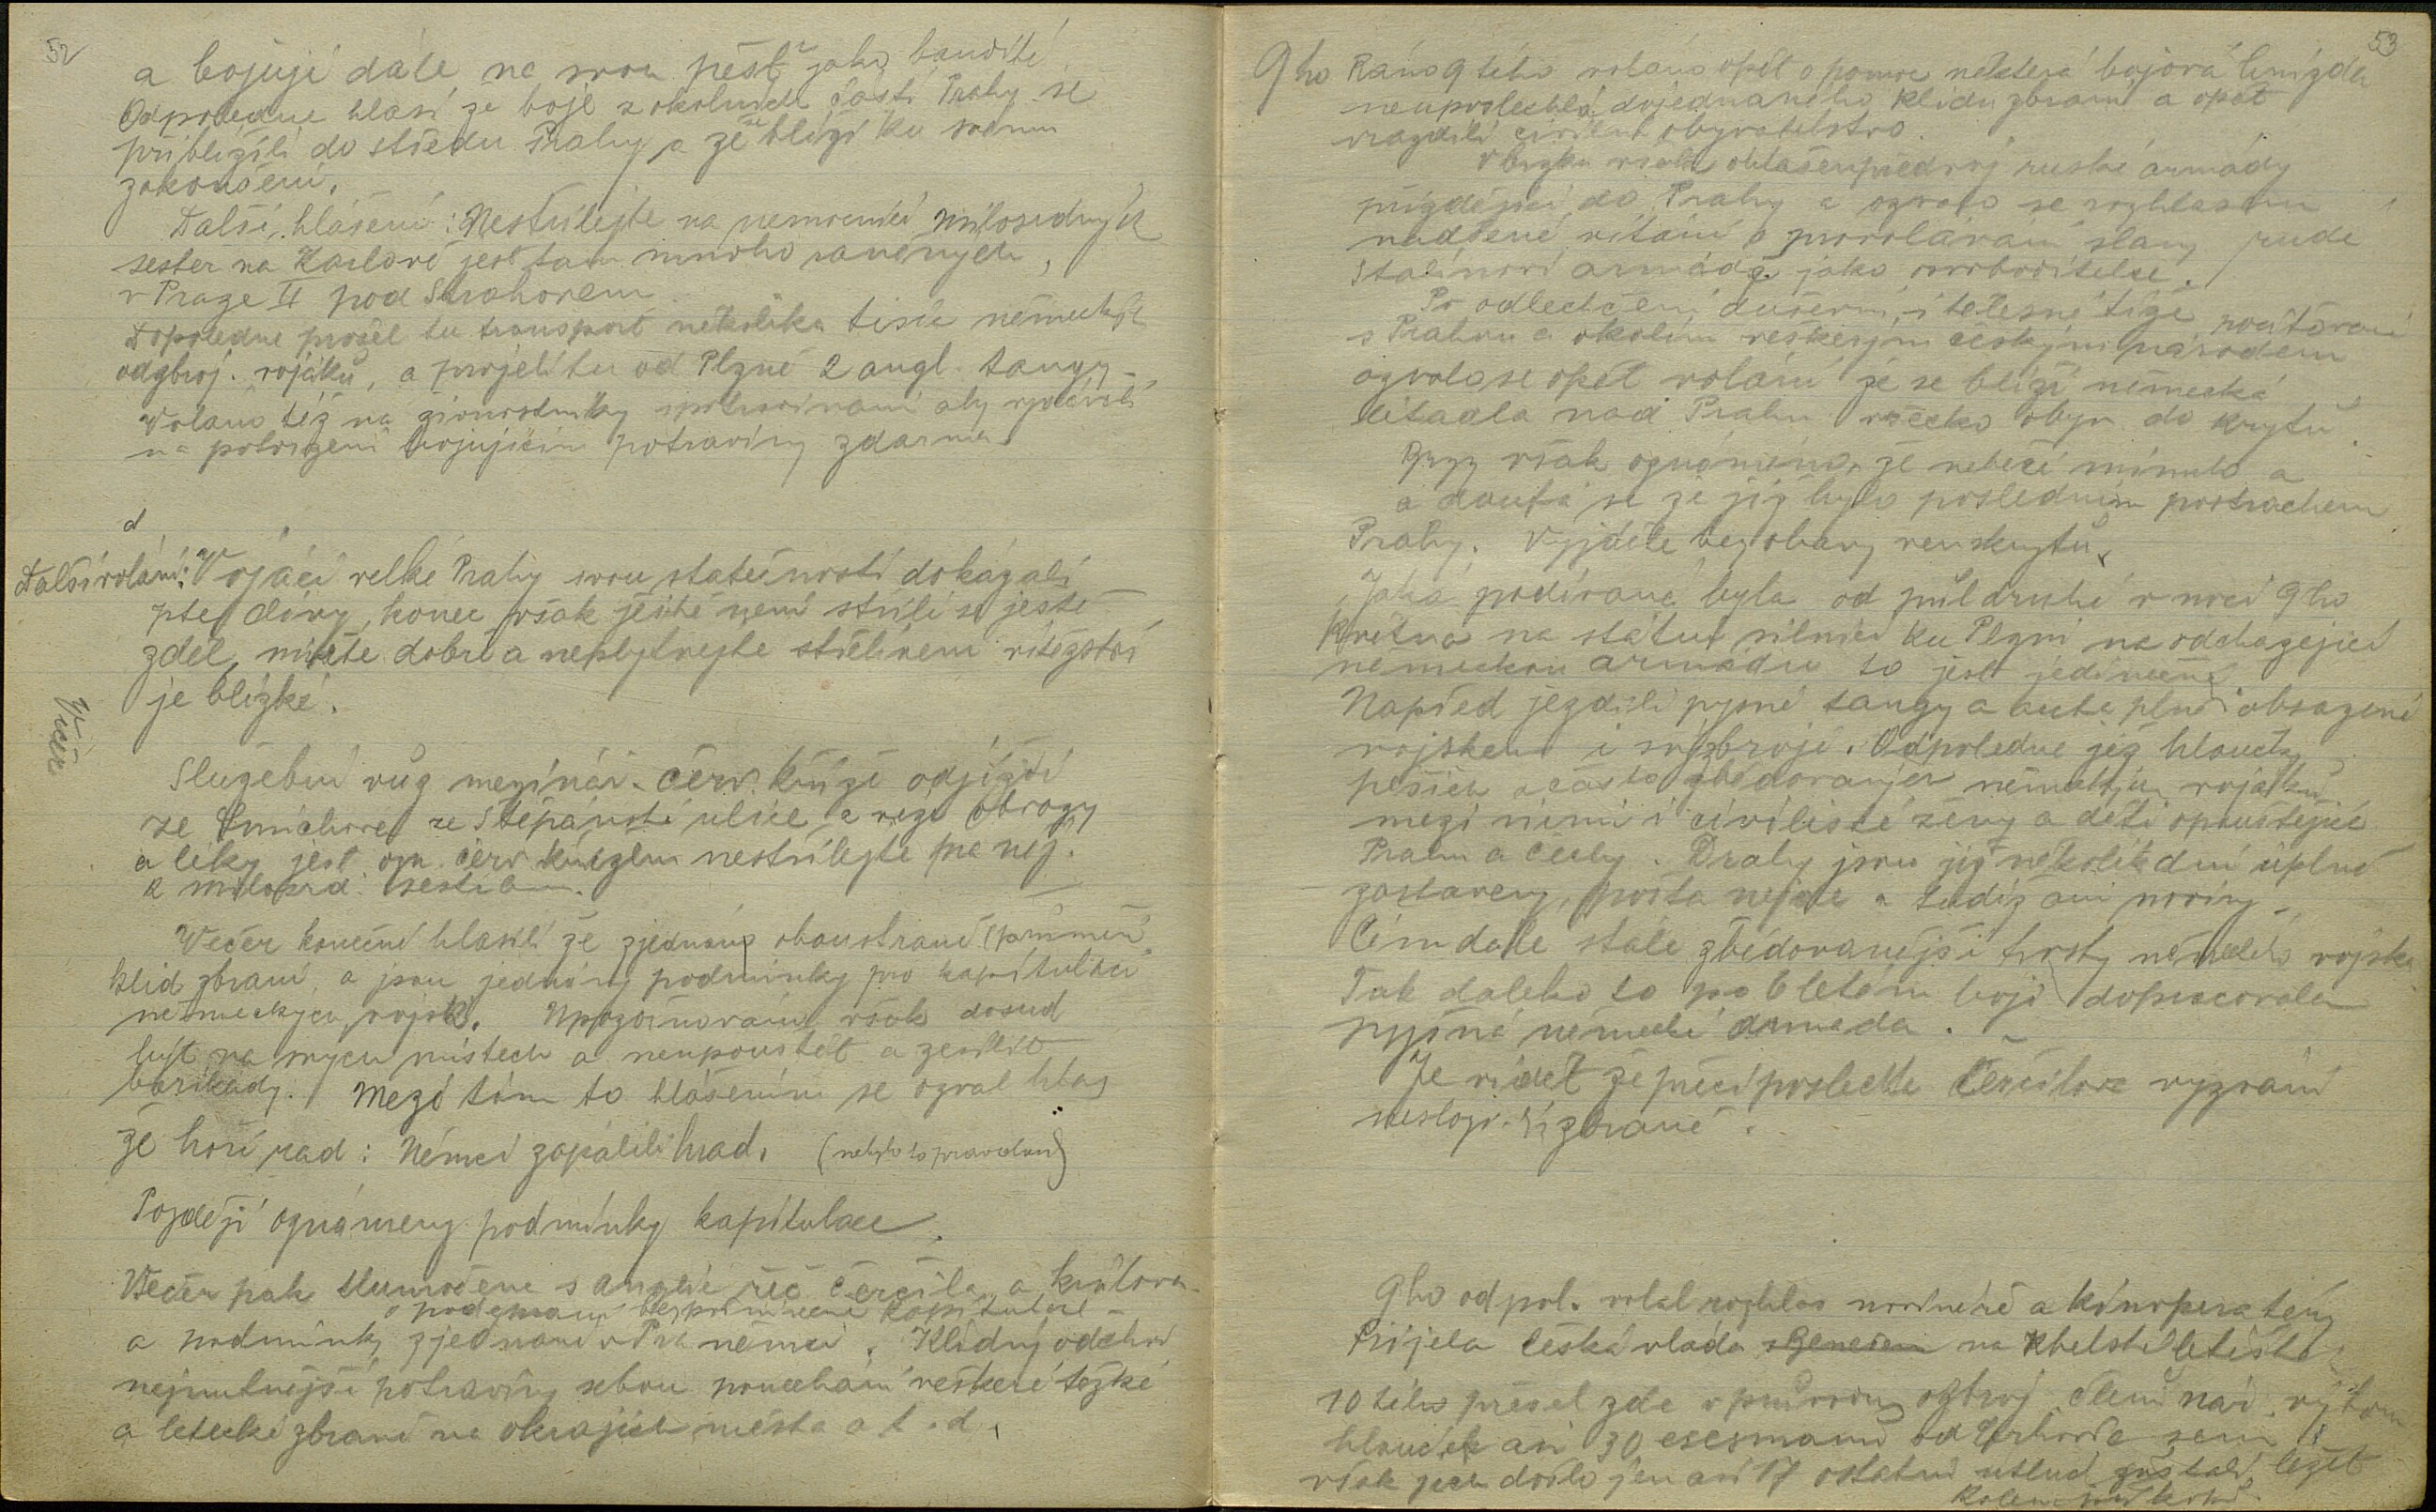 52
a bojují dále na svou pěst jako bandité
Odpoledne hlásí že boje z okolních částí Prahy se
přiblížili do středu Prahy a že se blíží ku svému
zakončení.
Další hlášení: Nestřílejte na nemocnici milosrdných
sester na Karlově jest tam mnoho raněných,
v Praze II pod Strahovem
Dopoledne prošel tu transport několika tisíc německých
odzbroj. vojáků, a projeli tu od Plzně 2 angl. tangy
Voláno též na živnostníky aby vydávali
na potvrzení bojujícím potraviny zdarma
Další volání: Vojáci velké Prahy svou statečností dokázali
divy, konec však ještě není střílí se ještě
zdél, miřte dobře a neplýtvejte střelivem vítězství
je blízké.
Večer
Služební vůz mezinár. červ. kříže odjíždí
ze Smíchova ze Štěpánské ulice a veze obvazy
a léky jest ozn. červ. křížem nestřílejte na něj.
k milosrd. sestrám.
Večer konečně hlásili že zjednáno oboustrané příměří
klid zbraní, a jsou jednány podmínky pro kapitulaci
německých vojsk. Upozorňováni však dosud
být na svých místech a neupouštět a zesílit
barikády. Mezi tím to hlášením se ozval hlas
že hoří rad: Němci zapálili hrad. (nebylo to pravdou)
Později oznámeny podmínky kapitulace.
Večer pak tlumočena s Anglie řeč Čerčila a králova
o podepsaní bezpodmínečné kapitulace
a podmínky zjednané v Pra němci. Klidný odchod
nejnutnější potraviny sebou ponechání veškeré těžké
a letecké zbraně na okrajích města a t. d.
53
9ho Ráno 9tého voláno opět o pomoc některá bojová hnízda
neuposlechla dojednaného klidu zbraní a opět
vraždili civilní obyvatelstvo.
V brzku však ohlášen předvoj ruské armády
přijíždějící do Prahy a ozvalo se rozhlasem
nadšené vítání a provolávání slávy rudé
Stalinově armádě jako osvoboditelce.
Po odlehčení duševní i tělesné tíže
s Prahou a okolím veškerým českým národem
ozvalo se opět volání že se blíží německá
letadla nad Prahu všecko obyv. do krytů.
Brzy však oznámeno, že nebezpečí minulo a
a doufá se že již bylo posledním postrachem
Prahy. Vyjděte bez obavy ven z krytů.
Jaká podívaná byla od půl druhé v noci 9ho
Května na státní silnici ku Plzni na odcházející
německou armádu to jest jedinečné
Napřed jezdili pyšné tangy a auta plně obsazené
vojskem i s výzbrojí. Odpoledne již hloučky
pěších a často zbědovaných německých vojáků
mezi nimi i civilisté ženy a děti opouštějící
Prahu a Čechy. Dráhy jsou již několik dní úplně
zastaveny, pošta nejde a tudíž ani noviny
Čím dále stále zbědovanější trosky německého vojska
Tak daleko to po 6 letém boji dopracovala
pyšná německá armada.
Je vidět že přeci poslechla Čerčilova vyzvání
9ho odpol. volal rozhlas novináře a kinoperatéry
Přijela česká vláda s Benešem na Kbelské letiště
10tého přešel zde v průvodu ozbroj. členů nár. výboru
hlouček asi 30 esesmanů od
však jich došlo jen asi 17 ostatní zůstali ležet